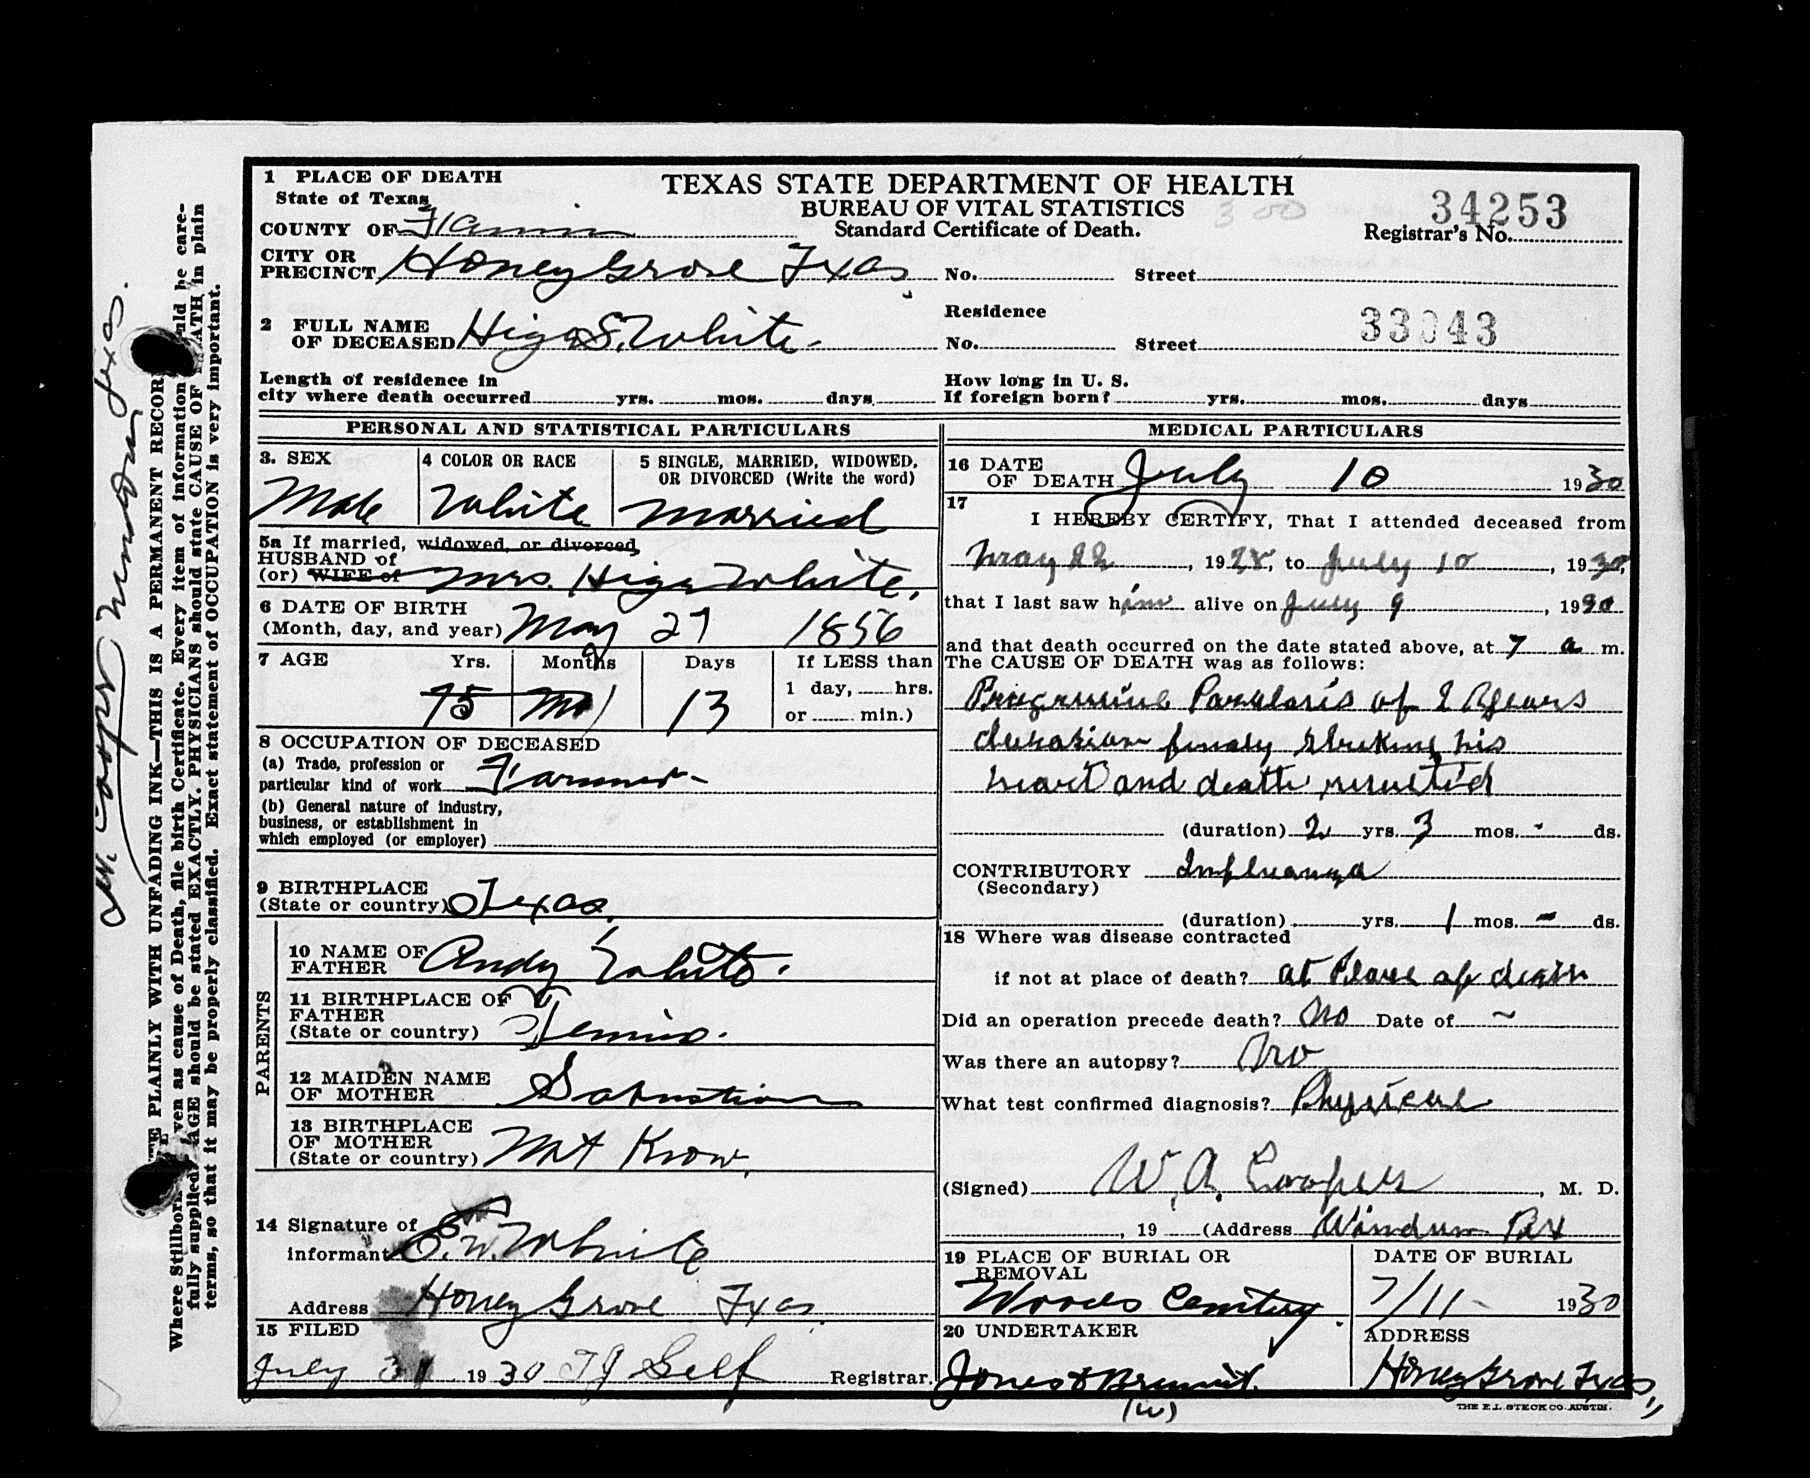 TEXAS STATE DEPARTMENT OF HEALTH
BUREAU OF VITAL STATISTICS
Standard Certificate of Death.
34253
Registrar's No.
1 PLACE OF DEATH
State of Texas
COUNTY OF Fannin
CITY OR PRECINCT Honey Grove Texas No. Street
Residence
33043
2 FULL NAME OF DECEASED Higa S. White No. Street
Length of residence in city where death occurred yrs. mos. days
How long in U. S. If foreign born? yrs. mos. days
PERSONAL AND STATISTICAL PARTICULARS
3. SEX Male
4 COLOR OR RACE White
5 SINGLE, MARRIED, WIDOWED, OR DIVORCED (Write the word) Married
5a If married, widowed, or divorced
HUSBAND of
(or) WIFE of Mrs. Higa White,
6 DATE OF BIRTH
(Month, day, and year) May 27 1856
7 AGE Yrs. Months Days If LESS than
75 1 13 1 day, hrs.
or min.)
8 OCCUPATION OF DECEASED
(a) Trade, profession or
particular kind of work Farmer
(b) General nature of industry,
business, or establishment in
which employed (or employer)
9 BIRTHPLACE
(State or country) Texas
PARENTS
10 NAME OF FATHER Andy White.
11 BIRTHPLACE OF FATHER
(State or country)
12 MAIDEN NAME OF MOTHER
13 BIRTHPLACE OF MOTHER
(State or country) Not Know
14 Signature of
informant E. W. White
Address Honey Grove Txas
15 FILED
July 31 1930 T J Self Registrar.
MEDICAL PARTICULARS
16 DATE OF DEATH July 10 1930
17
I HEREBY CERTIFY, That I attended deceased from
May 22, 1928, to July 10, 1930,
that I last saw him alive on July 9, 1930
and that death occurred on the date stated above, at 7 a m.
The CAUSE OF DEATH was as follows:
Progressive Paralasis of 2 Years
duration finaly streking his
heart and death resulted
(duration) 2 yrs. 3 mos. - ds.
CONTRIBUTORY Influanza
(Secondary)
(duration) yrs. 1 mos. - ds.
18 Where was disease contracted
if not at place of death? at Place of death
Did an operation precede death? No Date of ~
Was there an autopsy? No
What test confirmed diagnosis? Physical
(Signed) W. A. Cooper, M. D.
, 19 (Address Windum Tex
19 PLACE OF BURIAL OR REMOVAL
Woods Cemitery.
DATE OF BURIAL
7/11- 1930
20 UNDERTAKER
Jones &
(w)
ADDRESS
Honey Grove Txas,
THE E.L. STECK CO. AUSTIN.
PLAINLY WITH UNFADING INK—THIS IS A PERMANENT RECORD
Where Stillborn even as cause of Death, file birth Certificate. Every item of information should be care-
fully supplied. AGE should be stated EXACTLY. PHYSICIANS should state CAUSE OF DEATH in plain
terms, so that it may be properly classified. Exact statement of OCCUPATION is very important.
Cooper Windom Texas.